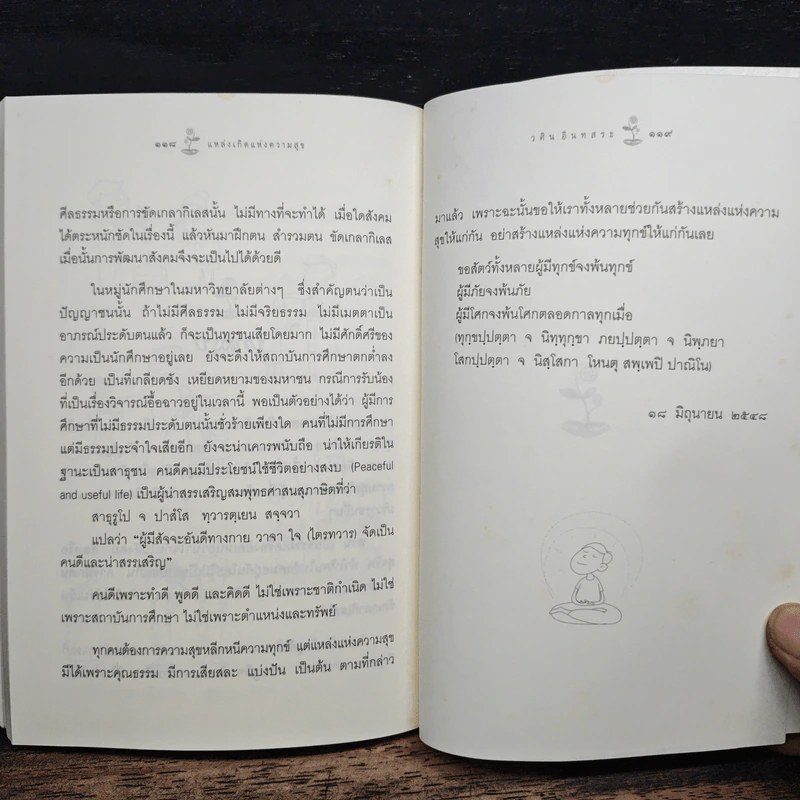 ๑๑๘ แหล่งเกิดแห่งความสุข
ศีลธรรมหรือการขัดเกลากิเลสนั้น ไม่มีทางที่จะทำได้ เมื่อใดสังคม
ได้ตระหนักชัดในเรื่องนี้ แล้วหันมาฝึกตน สำรวมตน ขัดเกลากิเลส
เมื่อนั้นการพัฒนาสังคมจึงจะเป็นไปได้ด้วยดี
ในหมู่นักศึกษาในมหาวิทยาลัยต่างๆ ซึ่งสำคัญตนว่าเป็น
ปัญญาชนนั้น ถ้าไม่มีศีลธรรม ไม่มีจริยธรรม ไม่มีเมตตาเป็น
อาภรณ์ประดับตนแล้ว ก็จะเป็นทุรชนเสียโดยมาก ไม่มีศักดิ์ศรีของ
ความเป็นนักศึกษาอยู่เลย ยังจะดึงให้สถาบันการศึกษาตกต่ำลง
อีกด้วย เป็นที่เกลียดชัง เหยียดหยามของมหาชน กรณีการรับน้อง
ที่เป็นเรื่องวิจารณ์อื้อฉาวอยู่ในเวลานี้ พอเป็นตัวอย่างได้ว่า ผู้มีการ
ศึกษาที่ไม่มีธรรมประดับตนนั้นชั่วร้ายเพียงใด คนที่ไม่มีการศึกษา
แต่มีธรรมประจำใจเสียอีก ยังจะน่าเคารพนับถือ น่าให้เกียรติใน
ฐานะเป็นสาธุชน คนดีคนมีประโยชน์ใช้ชีวิตอย่างสงบ (Peaceful
and useful life) เป็นผู้น่าสรรเสริญสมพุทธศาสนสุภาษิตที่ว่า
สาธุรูโป จ ปาสํโส ทฺวารตฺเยน สจฺจวา
แปลว่า “ผู้มีสัจจะอันดีทางกาย วาจา ใจ (ไตรทวาร) จัดเป็น
คนดีและน่าสรรเสริญ”
คนดีเพราะทำดี พูดดี และคิดดี ไม่ใช่เพราะชาติกำเนิด ไม่ใช่
เพราะสถาบันการศึกษา ไม่ใช่เพราะตำแหน่งและทรัพย์
ทุกคนต้องการความสุขหลีกหนีความทุกข์ แต่แหล่งแห่งความสุข
มีได้เพราะคุณธรรม มีการเสียสละ แบ่งปัน เป็นต้น ตามที่กล่าว
วศิน อินทสระ ๑๑๙
มาแล้ว เพราะฉะนั้นขอให้เราทั้งหลายช่วยกันสร้างแหล่งแห่งความ
สุขให้แก่กัน อย่าสร้างแหล่งแห่งความทุกข์ให้แก่กันเลย
ขอสัตว์ทั้งหลายผู้มีทุกข์จงพ้นทุกข์
ผู้มีภัยจงพ้นภัย
ผู้มีโศกจงพ้นโศกตลอดกาลทุกเมื่อ
(ทุกฺขปฺปตฺตา จ นิทฺทุกฺขา ภยปฺปตฺตา จ นิพฺภยา
โสกปฺปตฺตา จ นิสฺโสกา โหนตุ สพฺเพปิ ปาณิโน)
๑๘ มิถุนายน ๒๕๔๘